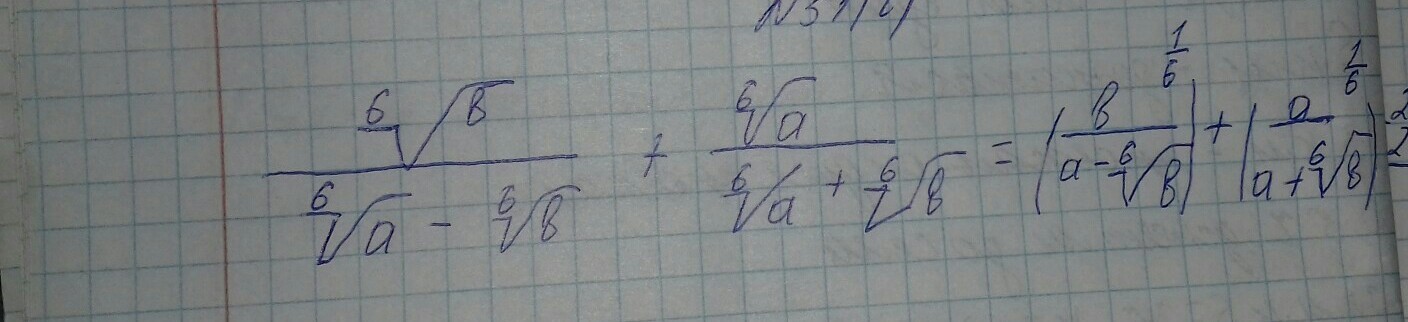 \frac{\sqrt[6]{b}}{\sqrt[6]{a} - \sqrt[6]{b}} + \frac{\sqrt[6]{a}}{\sqrt[6]{a} + \sqrt[6]{b}} = \left(\frac{b}{a - \sqrt[6]{b}}\right)^{\frac{1}{6}} + \left(\frac{a}{a + \sqrt[6]{b}}\right)^{\frac{1}{6}}